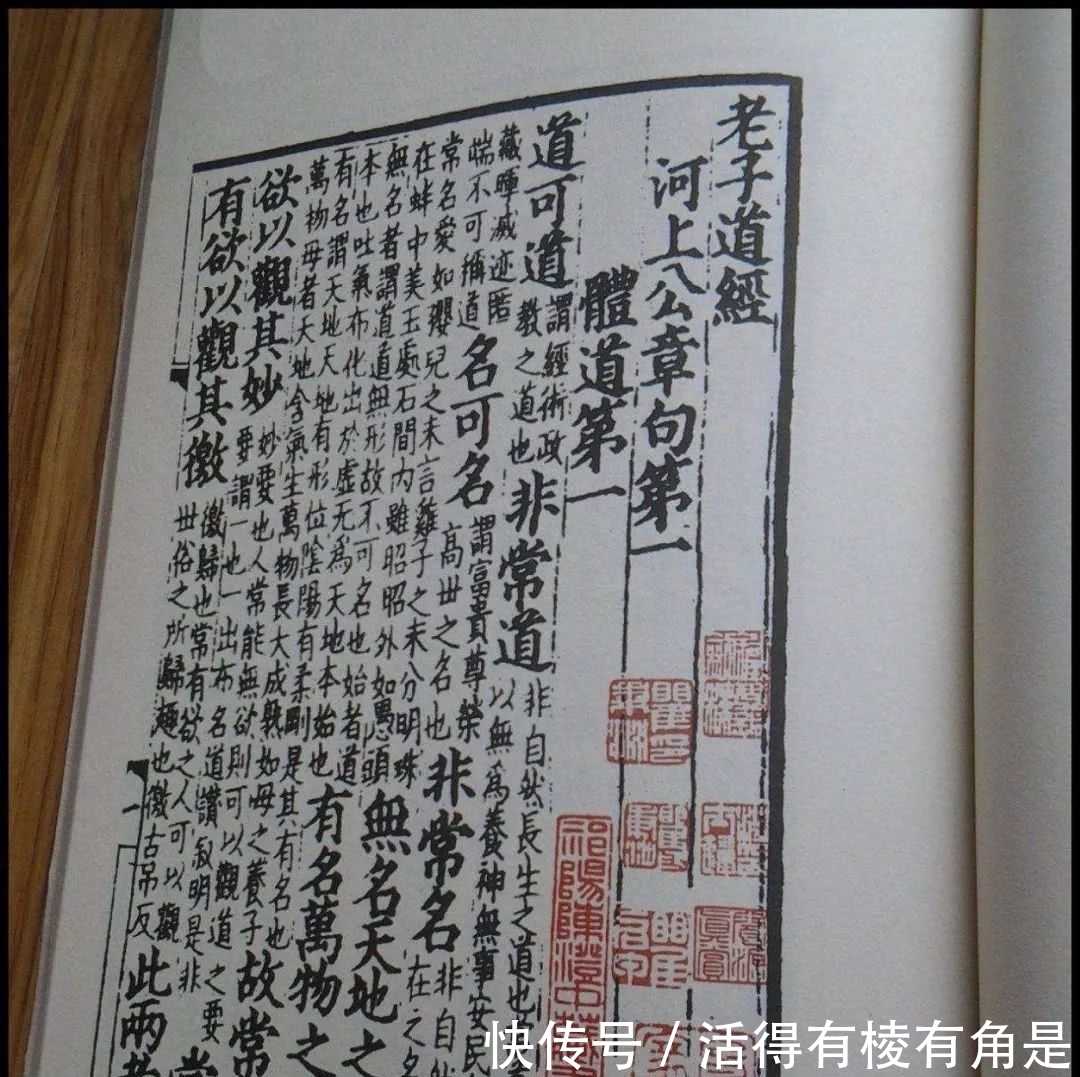 老子道經
河上公章句第一
體道第一
道可道
謂經術政
教之道也
非常道
非自然長生之道也
以無爲養神無事安民
藏暉滅迹匿
端不可稱道
名可名
謂富貴尊榮
高世之名也
非常名
非自然
在之名
常名愛如嬰兒之未言雞子之未分明珠
在蚌中美玉處石間内雖昭昭外如愚頭
無名天地之
無名者謂道道無形故不可名也始者道
本也吐氣布化出於虛无爲天地本始也
有名萬物之
有名謂天地天地有形位陰陽有柔剛是其有名也
萬物母者天地含氣生萬物長大成熟如母之養子
故常
欲以觀其妙
妙要也人常能無欲則可以觀道之要
要謂一也一出布名道讚叙明是非
常
有欲以觀其徼
徼歸也常有欲之人可以觀
世俗之所歸趣也徼古吊反
此兩者
祁陽陳澄中藏
快传号 / 活得有棱有角是